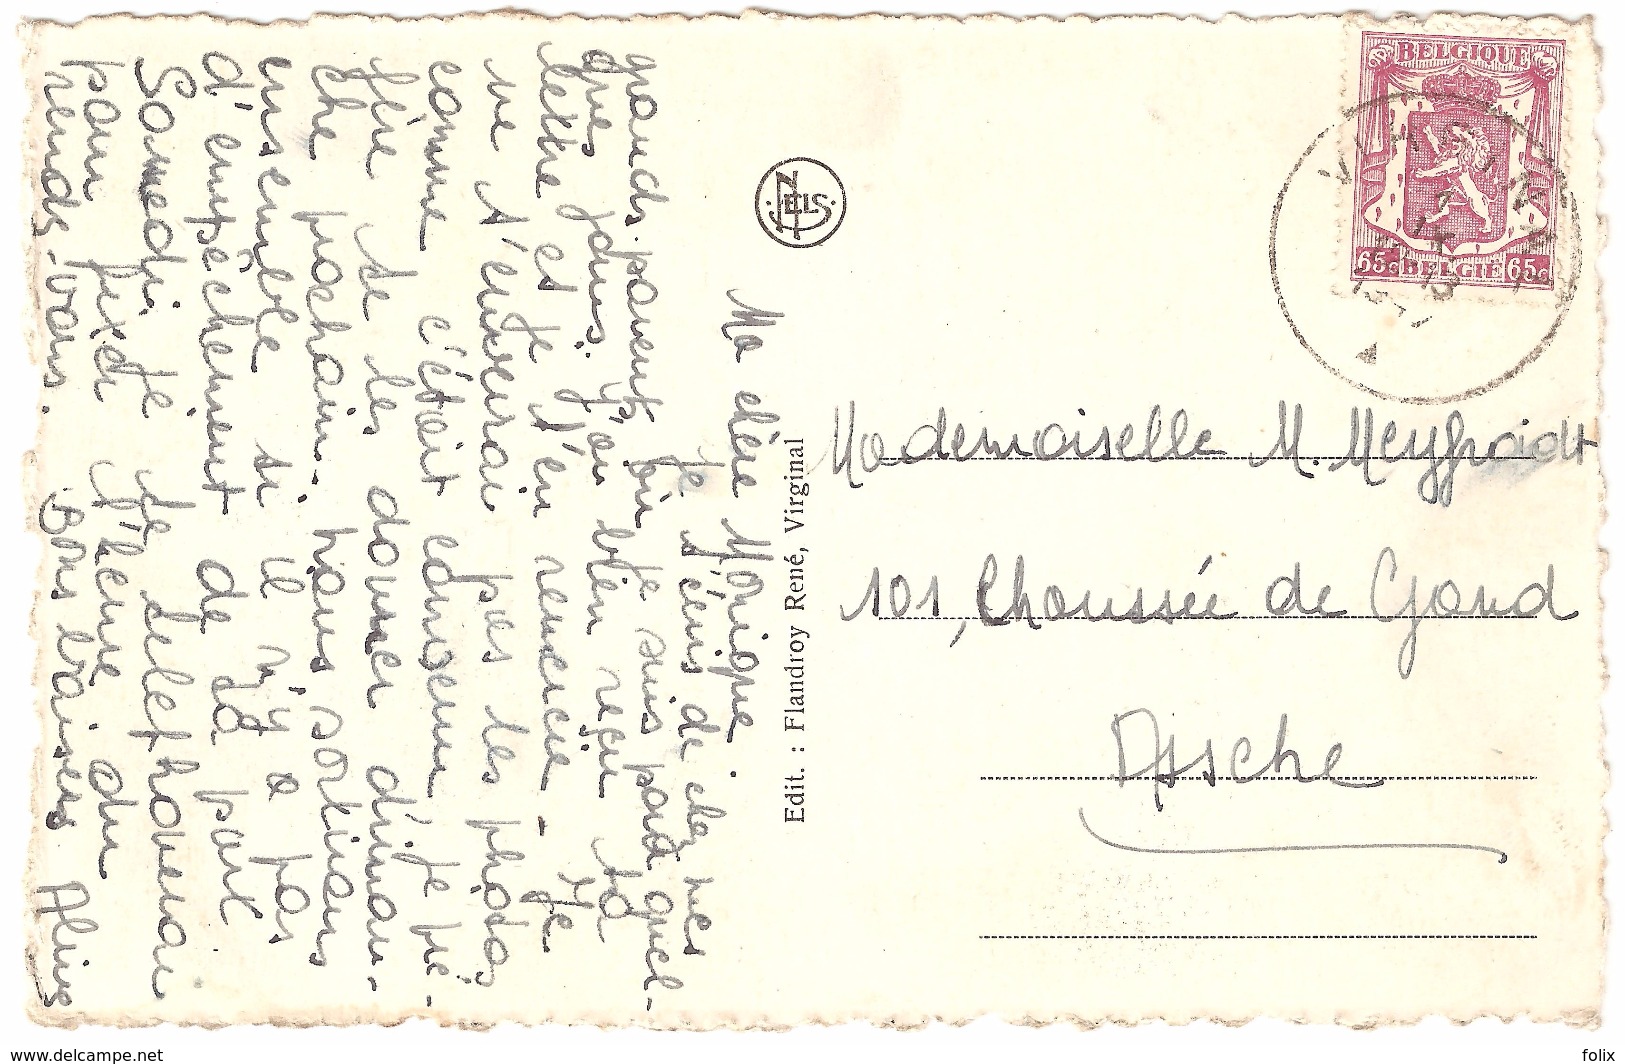 Ma chère Monique,
Je t'écris de chez mes
grands-parents où je suis pour quel-
ques jours. J'ai bien reçu ta
lettre et je t'en remercie. Je
ne t'enverrai pas les photos
comme c'était convenu, je pré-
fère te les donner diman-
che prochain, nous sortirons
ensemble si il n'y a pas
d'empêchement de ta part
Samedi je te téléphonerai
pour fixer l'heure du
rendz-vous. Bons baisers Aline
Edit. : Flandroy René, Virginal
NELS
BELGIQUE
65c BELGIE 65c
Mademoiselle M. Meyfroidt
101, Chaussée de Gand
Assche
www.delcampe.net
folix